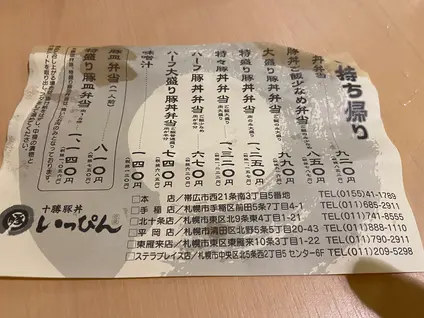 持ち帰り
豚丼弁当 九二〇円
豚丼ご飯少なめ弁当 八五〇円
大盛り豚丼弁当 九九〇円
特盛り豚丼弁当 一、二五〇円
特々豚丼弁当 一、三二〇円
ハーフ豚丼弁当 六七〇円
ハーフ大盛り豚丼弁当 七四〇円
味噌汁 一四〇円
豚皿弁当 八一〇円
特盛り豚皿弁当 一、一四〇円
十勝豚丼
いっぴん
□本店／帯広市西21条南3丁目5番地 TEL(0155)41-1789
□手稲店／札幌市手稲区前田5条7丁目4-1 TEL(011)685-2911
□北十条店／札幌市東区北9条東4丁目1-21 TEL(011)741-8555
□平岡店／札幌市清田区北野5条5丁目20-43 TEL(011)888-1110
□東雁来店／札幌市東区東雁来10条3丁目1-22 TEL(011)790-2911
□ステラプレイス店／札幌市中央区北5条西2丁目5 センター6F TEL(011)209-5298